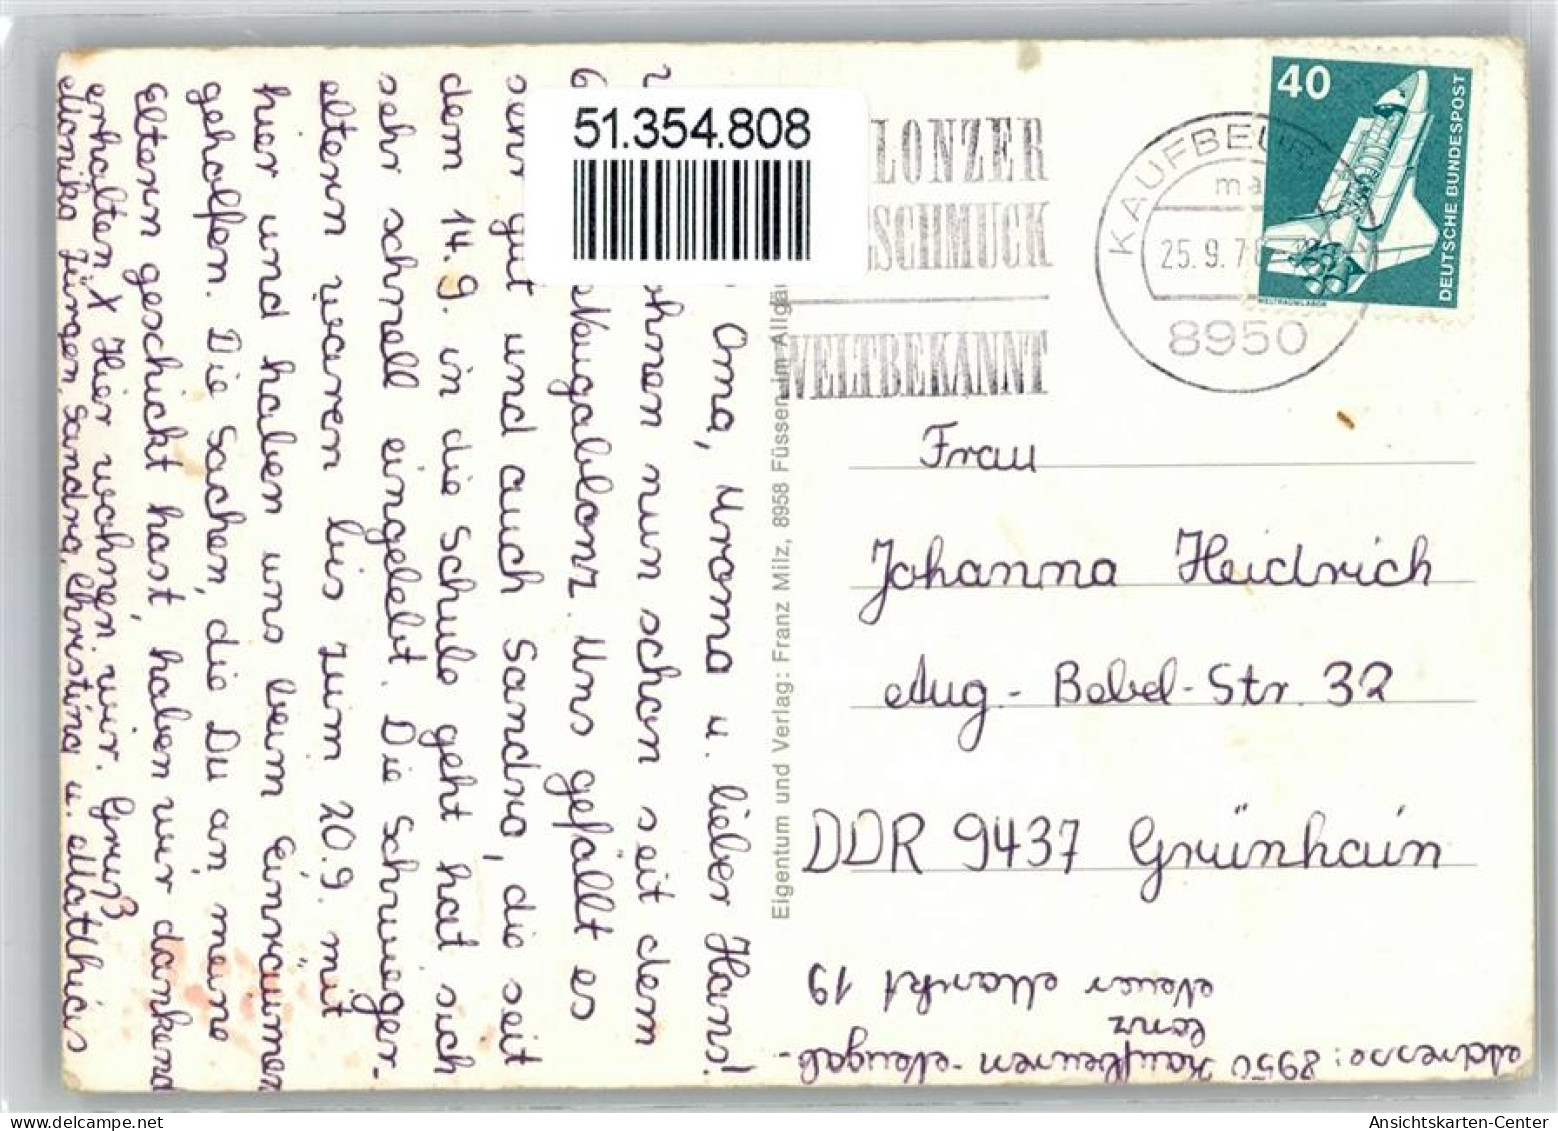 51.354.808
Oma, Uroma u. lieber Hans!
ohnen nun schon seit dem
Neugablonz. Uns gefällt es
sehr gut und auch Sandra, die seit
dem 14.9. in die Schule geht hat sich
sehr schnell eingelebt. Die Schwieger-
eltern waren bis zum 20.9. mit
hier und haben uns beim Einräumen
geholfen. Die Sachen, die Du an meine
Eltern geschickt hast, haben wir dankend
erhalten. X Hier wohnen wir. Gruß
Monika Jürgen, Sandra, Christina u. Matthias
Eigentum und Verlag: Franz Milz, 8958 Füssen im Allgäu
LONZER
SCHMUCK
WELTBEKANNT
KAUFBEUR
25.9.7
8950
40
DEUTSCHE BUNDESPOST
WELTRAUMLABOR
Frau
Johanna Heidrich
Aug.-Bebel-Str. 32
DDR 9437 Grünhain
Addresse: 8950 Kaufbeuren-Neugab-
lonz
Neuer Markt 19
Ansichtskarten-Center